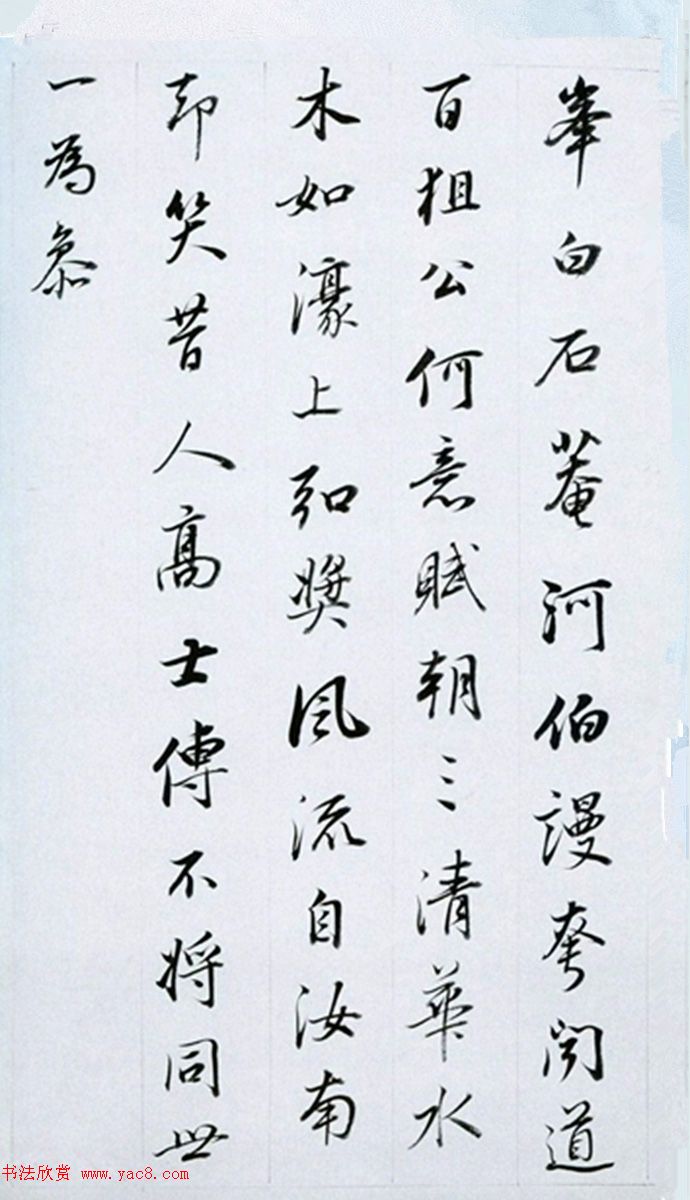 峯白石菴河伯謾夸闻道
百狙公何意賦朝三清華水
木如濠上弘奬风流自汝南
却笑昔人高士傅不将同世
一為叅
书法欣赏 www.yac8.com